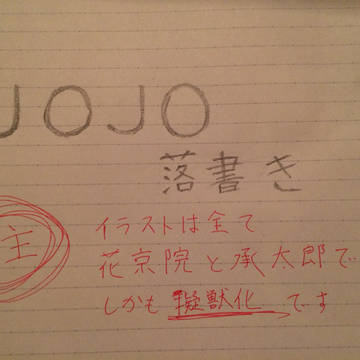 JOJO
落書き
主
イラストは全て
花京院と承太郎で
しかも擬獣化です